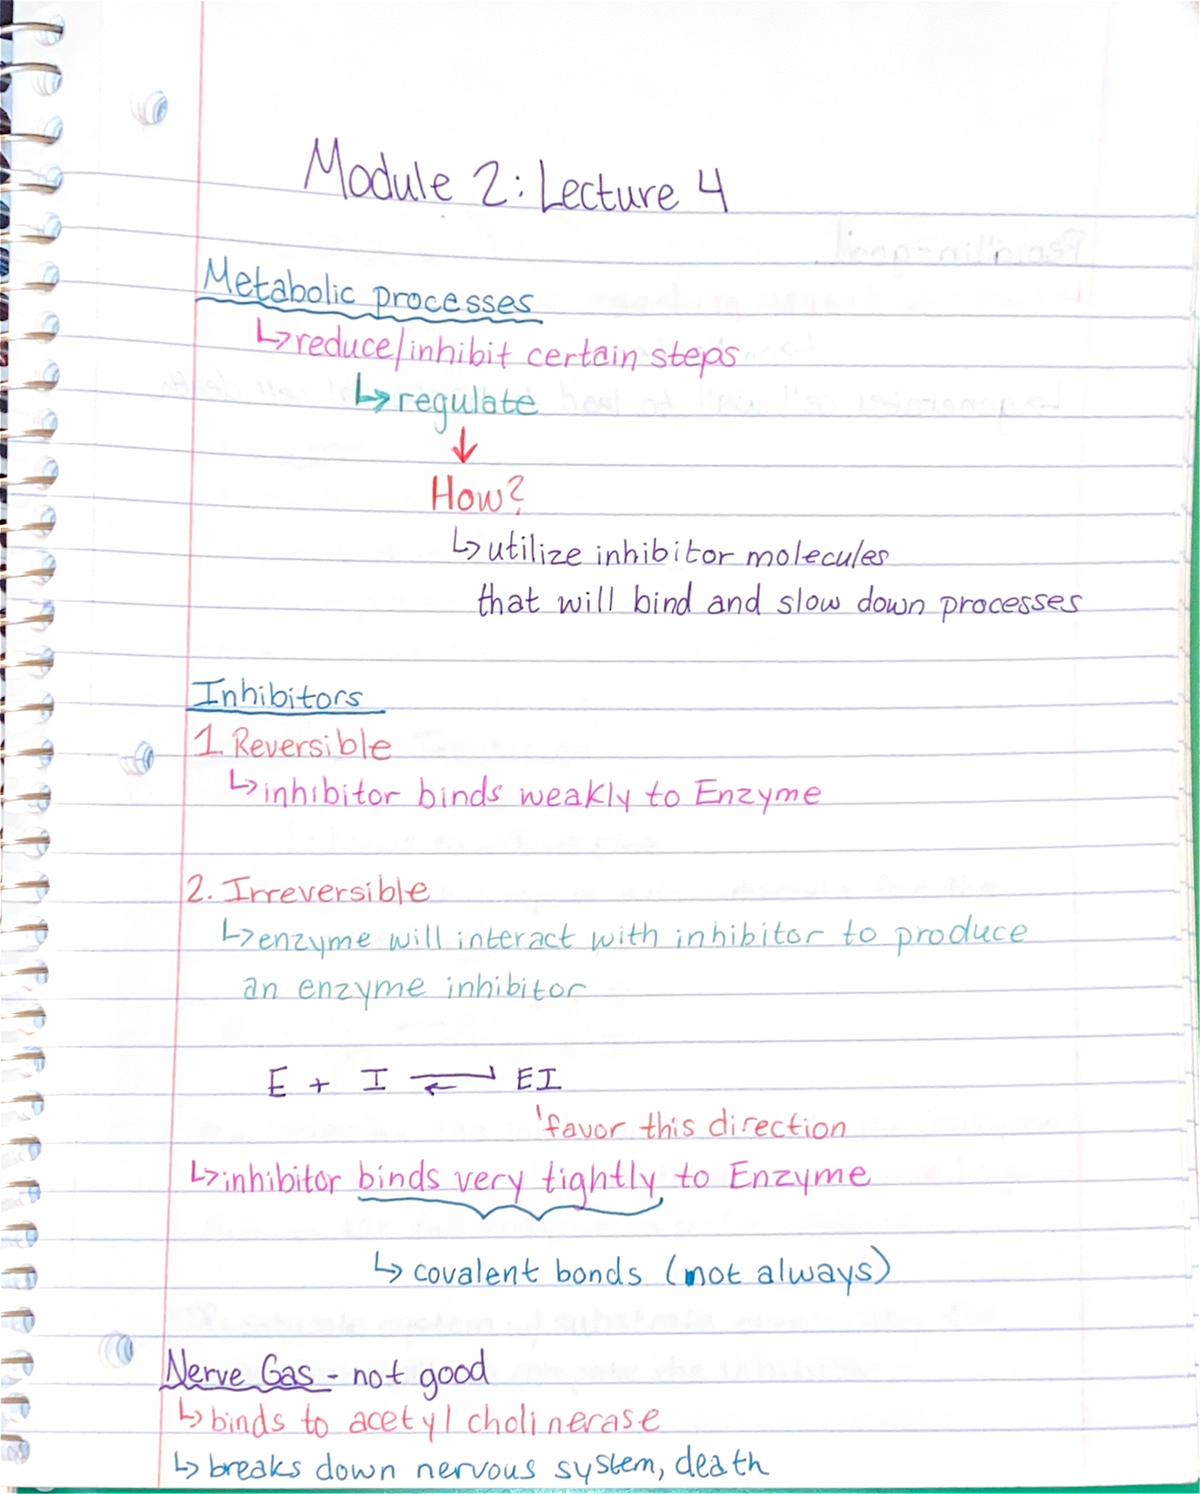 Module 2: Lecture 4
Metabolic processes
↳reduce/inhibit certain steps
↳regulate
↓
How?
↳utilize inhibitor molecules
that will bind and slow down processes
Inhibitors
1. Reversible
↳inhibitor binds weakly to Enzyme
2. Irreversible
↳enzyme will interact with inhibitor to produce
an enzyme inhibitor
E + I ⇌ EI
'favor this direction
↳inhibitor binds very tightly to Enzyme
↳ covalent bonds (not always)
Nerve Gas - not good
↳binds to acetyl cholinerase
↳breaks down nervous system, death